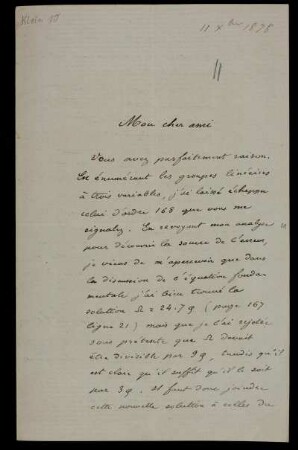 Klein 10
11 Xbre 1878
11
Mon cher ami
Vous avez parfaitement raison.
En énumérant les groupes linéaires
à trois variables, j'ai laissé échapper
celui d'ordre 168 que vous me
signalez. En revoyant mon analyse
pour découvrir la source de l'erreur
je viens de m'apercevoir que dans
la discussion de l'équation fonda-
mentale j'ai bien trouvé la
solution Ω = 24.7 φ (page 167
ligne 21) mais que je l'ai rejetée
sous prétexte que Ω devait
être divisible par 9φ, tandis qu'il
est clair qu'il suffit qu'il le soit
par 3φ. Il faut donc joindre
cette nouvelle solution à celles du